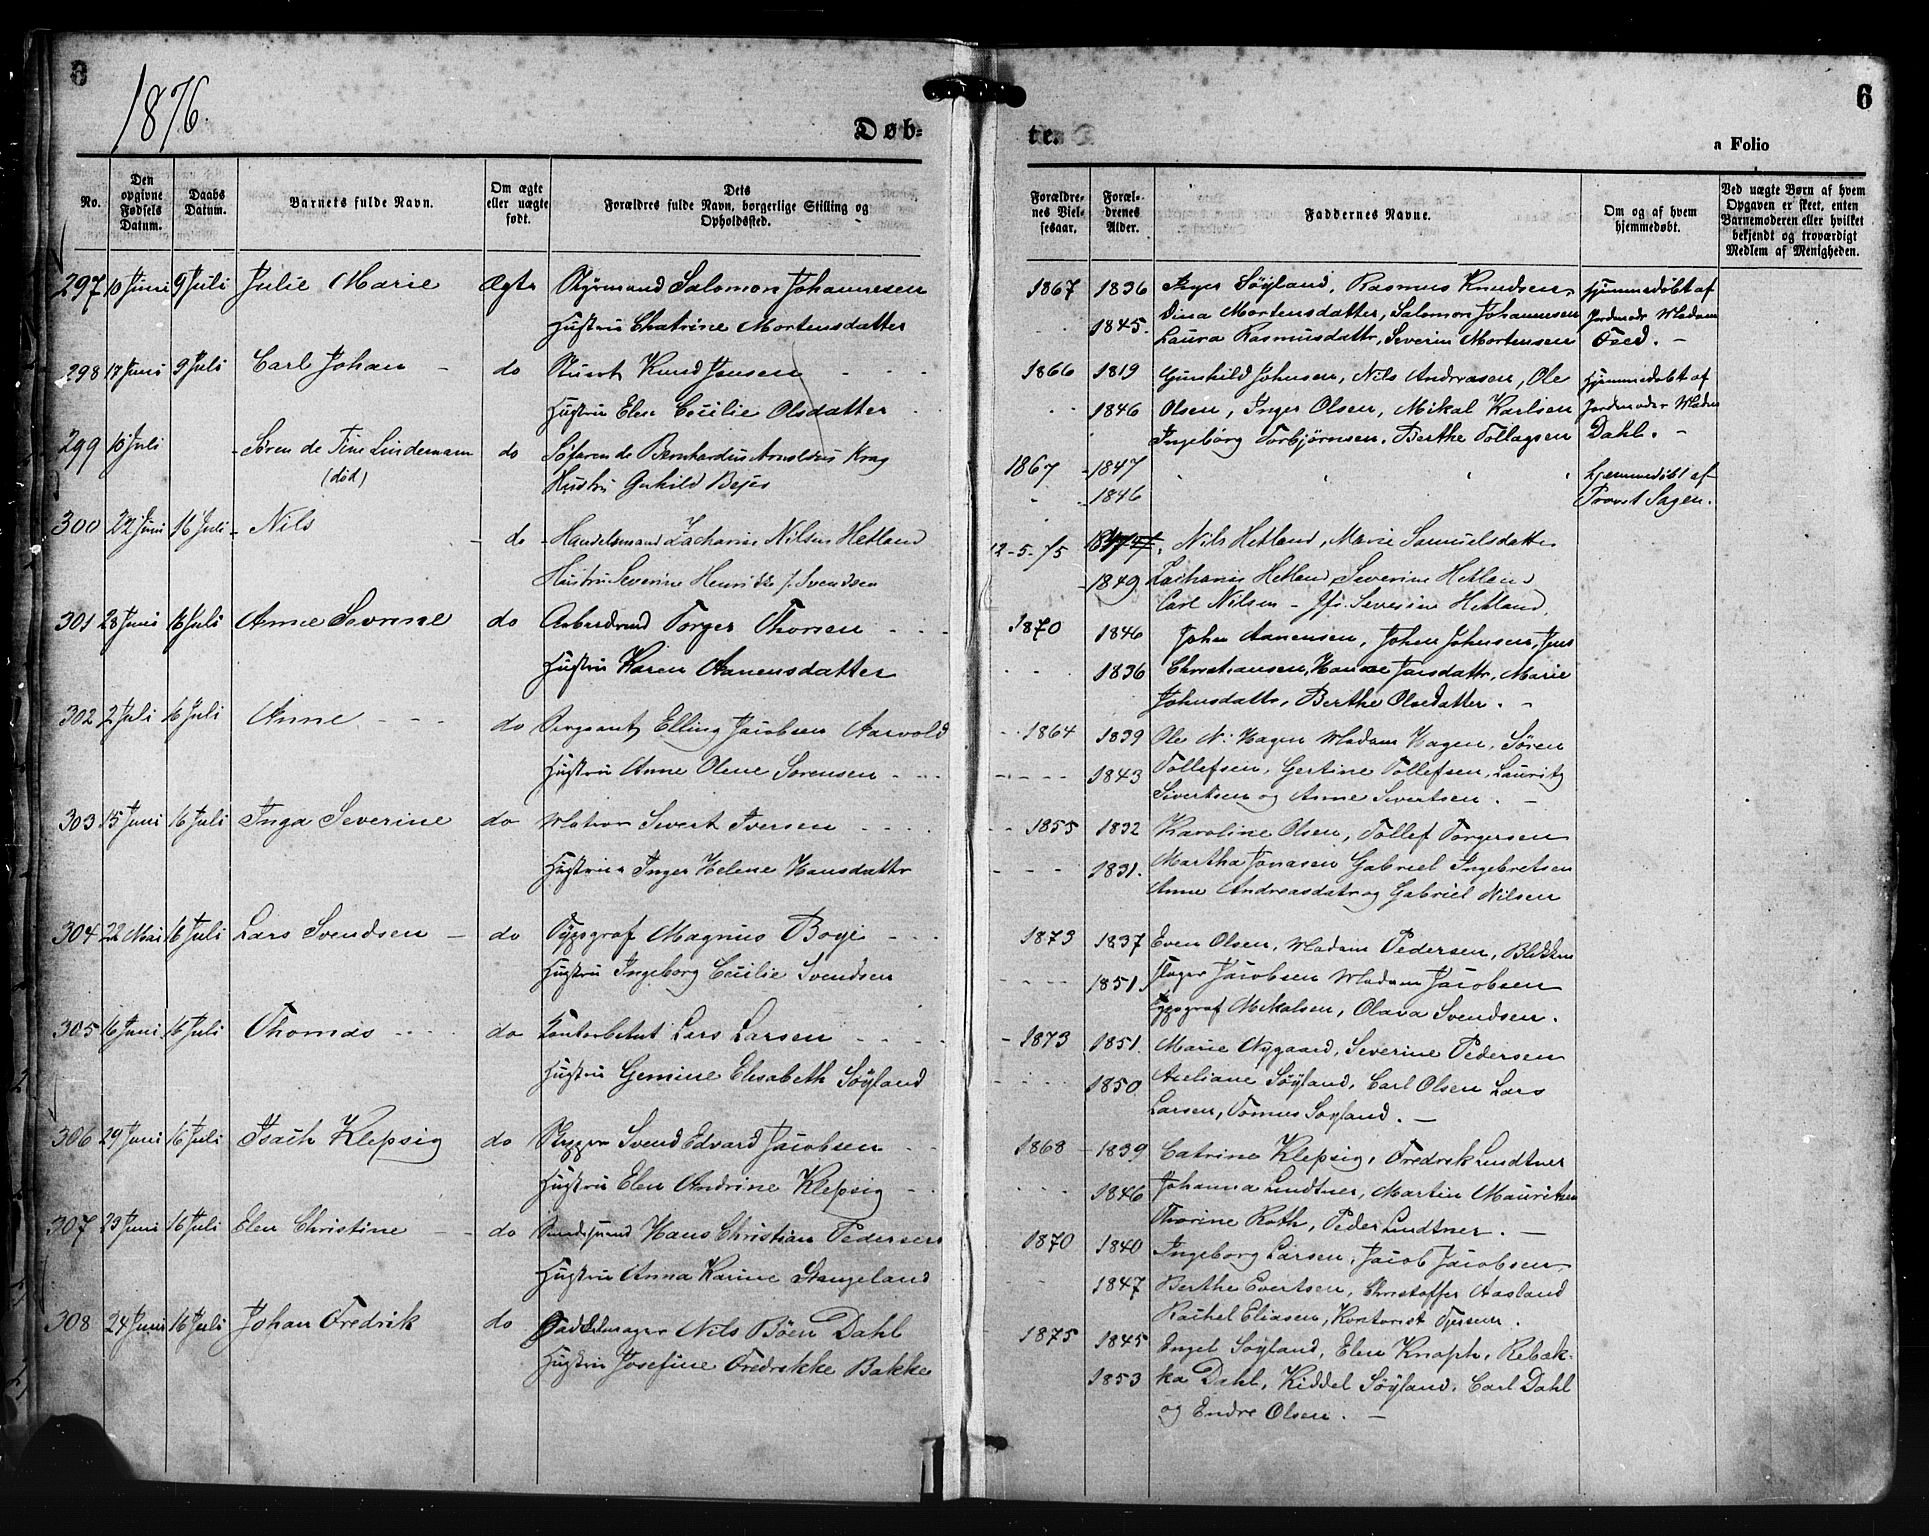 6
1876
Døb-
te.
6
a Folio
No.
Den opgivne Fødsels Datum.
Daabs Datum.
Barnets fulde Navn.
Om ægte eller uægte født.
Dets Forældres fulde Navn, borgerlige Stilling og Opholdssted.
Forældre-nes Viel-sesaar.
Foræl-drenes Alder.
Faddernes Navne.
Om og af hvem hjemmedøbt.
Ved uægte Børn af hvem Opgaven er skeet, enten Barnemoderen eller hvilket bekjendt og troværdigt Medlem af Menigheden.
297 10 Juni 9 Juli Julie Marie Ægte Styrmand Salomon Johannesen 1867 1836 Inger Søyland, Rasmus Knudsen, Hjemmedøbt af
Hustru Chatrine Mortensdatter 1845. Dina Mortensdatter, Salomon Johannesen Jordmodr Madam
Laura Rasmusdattr, Severin Mortensen
298 17 Juni 9 Juli Carl Johan do Knud Jensen 1866 1819 Gunhild Johnsen, Nils Andreasen, Ole Hjemmedøbt af
Hustru Elen Cecilie Olsdatter 1846 Olsen, Inger Olsen, Mikal Karlsen Jordmoder Madm
Ingeborg Torbjørnsen, Berthe Tollagsen Dahl.
299 10 Juli Søren de Fine Lindemann do Søfarende Bernhardus Arnoldus Krag 1867 1847 hjemmedøbt af
(død) Hustru Guhild Bejer 1846 Provst Sagen.
300 22 Juni 16 Juli Nils do Handelsmand Zacharias Nilsen Hetland 12-5-75 Nils Hetland, Marie Samuelsdatter
Hustru Severine Henriette f. Svendsen 1849 Zacharias Hetland, Severine Hetland
Carl Nilsen - Jfr. Severine Hetland.
301 28 Juni 16 Juli Anne Sevrine do Torger Thorsen 1870 1846 Johan Aanensen, Johan Johnsen, Jens
Hustru Karen Aanensdatter 1836 Christiansen, Hanne Jansdattr, Marie
Johnsdattr, Berthe Olsedatter.
302 2 Juli 16 Juli Anne do Sergeant Elling Jacobsen Aarvold 1864 1839 Ole N. Hagen Madam Hagen, Søren
Hustru Anne Olene Sørensen 1843 Tollefsen, Gertine Tollefsen, Lauritz
Sivertsen og Anne Sivertsen.
303 15 Juni 16 Juli Inga Severine do Matros Sivert Iversen 1855 1832 Karoline Olsen, Tollef Torgersen
Hustru Inger Helene Hansdattr 1831. Martha Jonasen Gabriel Ingebretsen
Anne Andreasdatr og Gabriel Nilsen
304 22 Mai 16 Juli Lars Svendsen do Typograf Magnus Boge 1873 1837 Even Olsen, Madam Pedersen, Blikken
Hustru Ingeborg Cecilie Svendsen 1851. slager Jacobsen Madam Jacobsen
Typograf Mikalsen, Olava Svendsen.
305 16 Juni 16 Juli Thomas do Lars Larsen 1873 1851. Marie Nygaard, Severine Pedersen
Hustru Gemine Elisabeth Søyland 1850. Søyland, Carl Olsen Lars
Larsen, Tomas Søyland.
306 29 Juni 16 Juli Isach Klepsig do Skipper Svend Edvard Jacobsen 1868 1839 Catrine Klepsig, Fredrik Lundtner
Hustru Elen Andrine Klepsig 1846 Johanna Lundtner, Martin Mauritzen
Thorine Roth, Peder Lundtner.
307 23 Juni 16 Juli Elen Christine do Hans Christian Pedersen 1870 1840 Ingeborg Larsen, Jacob Jacobsen
Hustru Anna Karine Stangeland 1847 Berthe Evertsen, Christoffer Aasland
Rachel Eliasen, Kontorist Tjersen.
308 24 Juni 16 Juli Johan Fredrik do Saddelmager Nils Bøen Dahl 1875 1845 Engel Søyland, Elen Knaph, Rebæk-
Hustru Josefine Fredrikke Bakke 1853 ka Dahl, Kiddel Søyland, Carl Dahl
og Endre Olsen.